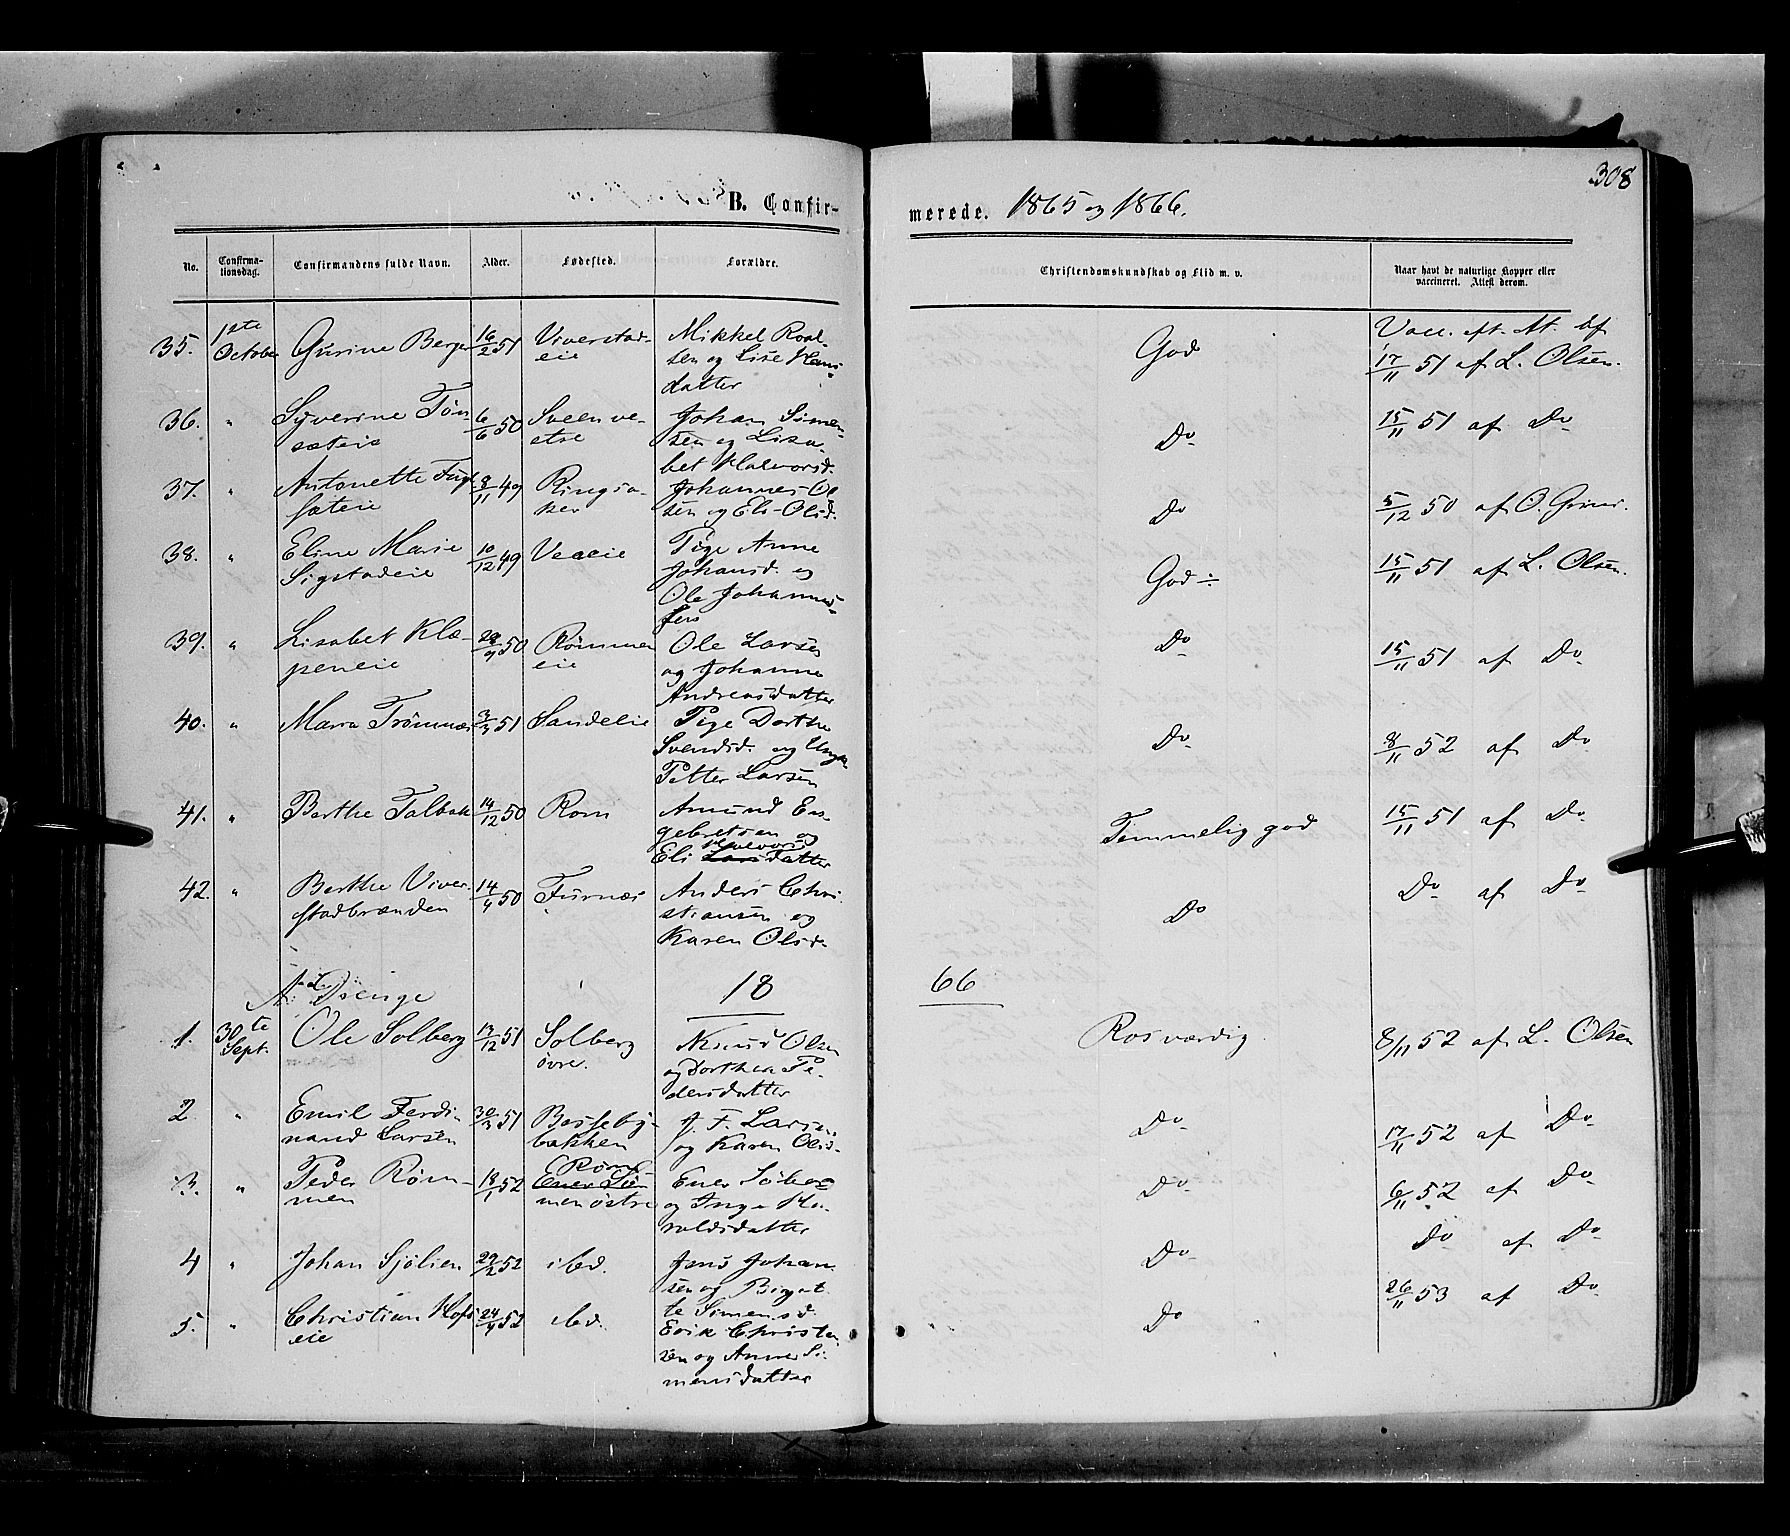 308
B. Confirmerede. 1865 og 1866.
No. Confirmationsdag. Confirmandens fulde Navn. Alder. Fødested. Forældre. Christendomskundskab og Flid m. v. Naar havt de naturlige Kopper eller vaccineret. Attest derom.
35. 1ste October Gurine Berge 16/2 51 Viverstadeie Mikkel Roalsen og Lise Hansdatter God Vacc. eft. At. af 17/11 51 af L. Olsen.
36. " Syverine Tønsæteie 6/6 50 Sveen vestre Johan Simensen og Lisabet Halvorsd. Do 15/11 51 af Do
37. " Antonette Fuglsæteie 8/11 49 Ringsaker Johannes Olsen og Eli Olsd. Do 5/12 50 af O.
38. " Eline Marie Sigstadeie 10/12 49 Veaeie Pige Anne Johansd. og Ole Johannessen God ÷ 15/11 51 af L. Olsen.
39. " Lisabet Klæpeneie /9 50 Rømmeneie Ole Larsen og Johanne Andreasdatter Do 15/11 51 af Do
40. " Maria Trømnæs 51 Sandeeie Pige Dorthe Svendsd. og Ungk. Petter Larsen Do 8/11 52 af Do
41. " Berthe Talbak 14/12 50 Rom Amund Engebretsen og Eli Halvorsdatter Temmelig god 15/11 51 af Do
42. " Berthe Viverstadbrænden 14/4 50 Furnæs Anders Christiansen og Karen Olsd. Do Do af Do
18 66
A. Drenge
1. 30te Sept. Ole Solberg /12 51 Solberg øvre. Knud Olsen og Dorthea Pedersdatter Rosværdig 8/11 52 af L. Olsen
2. " Emil Ferdinand Larsen 51 Bessebybakken J. F. Larsen og Karen Olsd. Do 17/11 52 af Do
3. " Peder Rømmen 18/1 52 Rømmen østre Ener og Inge Haraldsdatter Do 6/11 52 af Do
4 " Johan Sjølien 29/2 52 ibd. Jens Johansen og Birgitte Simensd. Do Do af Do
5. " Christian Hofseie 24/4 52 ibd. Erik Christensen og Anne Simensdatter Do 26/11 53 af Do